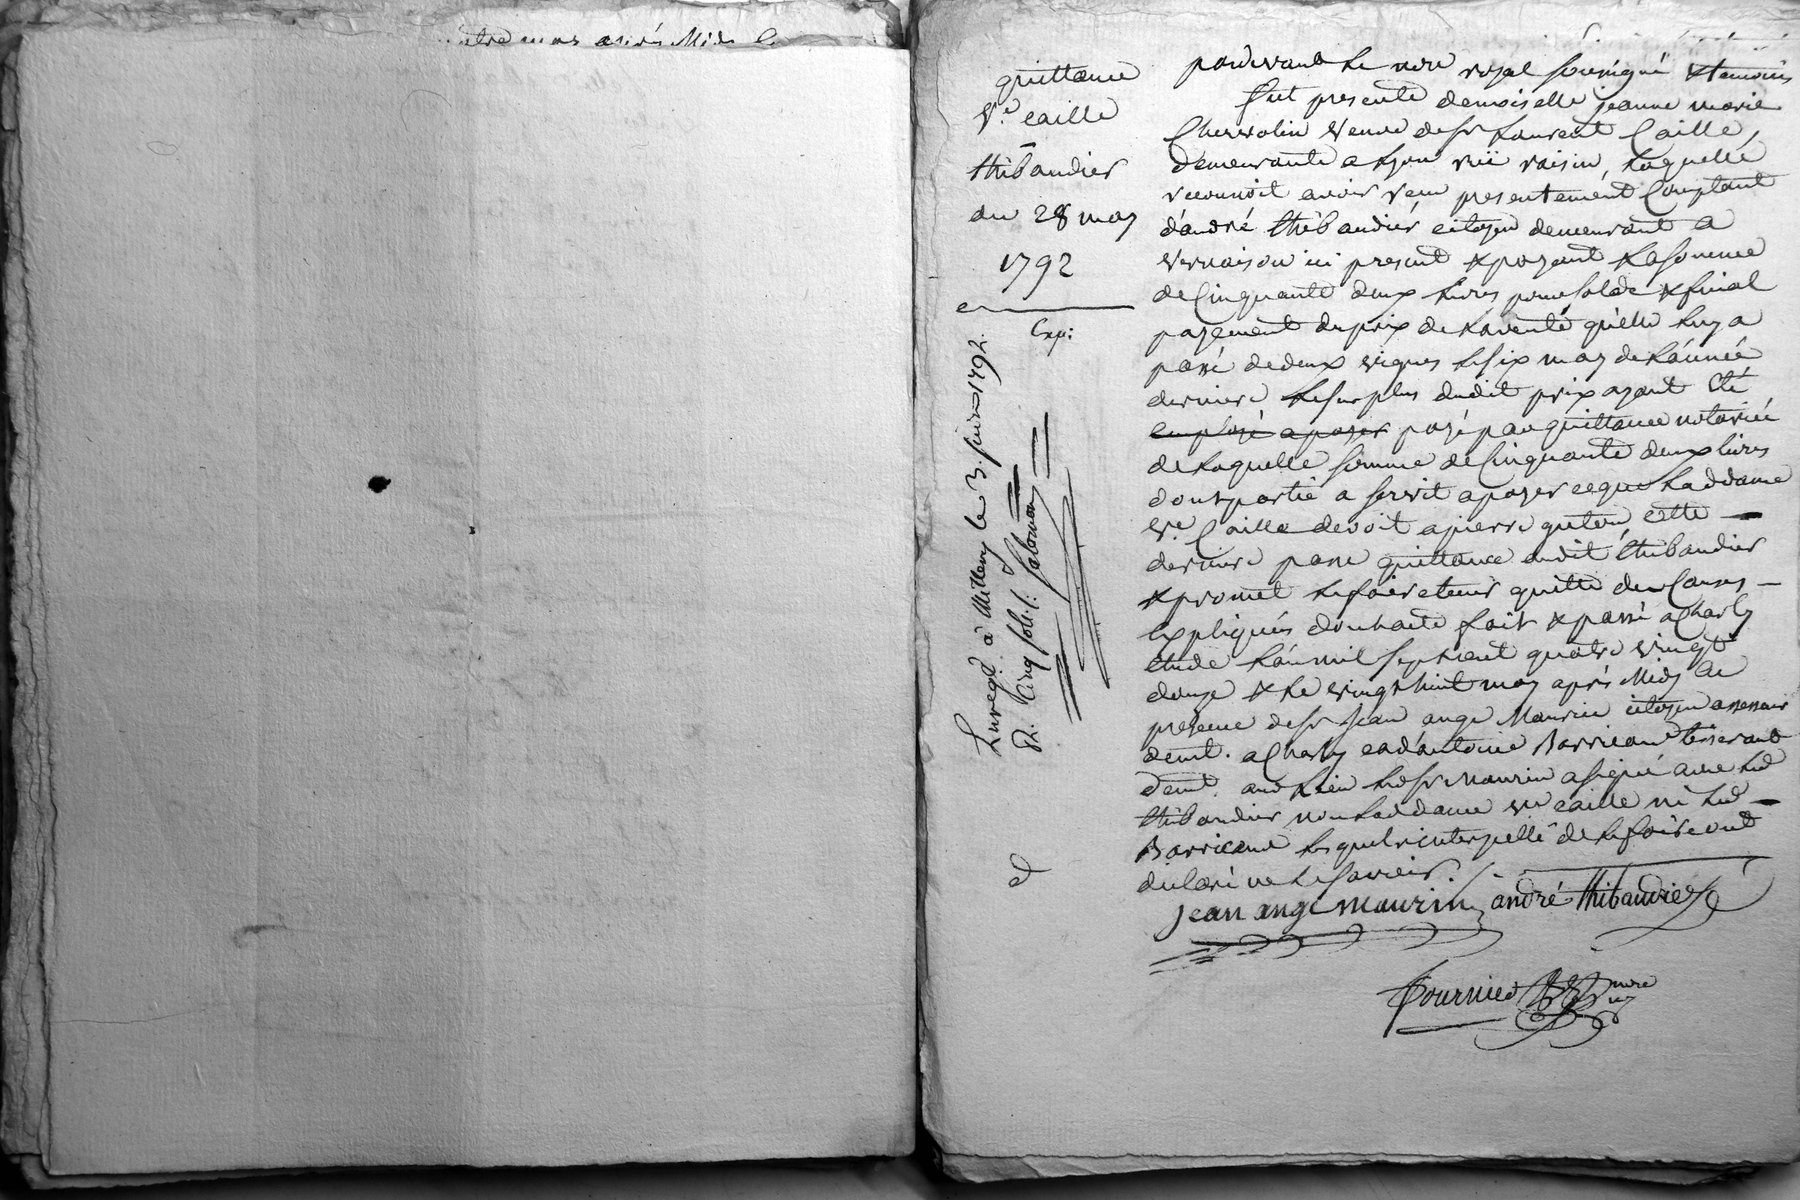 quittance
Ve. caille
thibaudier
du 28 may
1792
Exp:
Enregt. à Millery le 3. juin 1792.
R. Cinq sols. Salomon
pardevant le nore royal soussigné & temoins
fut presente demoiselle jeanne marie
veuve de sr Laurent Caille,
demeurante a Lyon ruë raisin, laquelle
reconnoit avoir reçu presentement Comptant
d'andré thibaudier citoyen demeurant a
vernaison ici present & payant la somme
de Cinquante deux livres pour solde & final
payement du prix de la vente qu'elle luy a
passé de deux vignes le six may de l'année
derniere le surplus dudit prix ayant été
employé a payer payé par quittance notariée
de laquelle somme de Cinquante deux livres
dont partie a servit a payer ce que lad dame
ve. Caille devoit a pierre guiton cette
derniere passe quittance audit thibaudier
& promet le faire tenir quitte des Causes
Expliquées dont acte fait & passé a Charly
étude l'an mil sept cent quatre vingt
douze & le vingt huit may après Midy en
presence de sr Jean ange Maurin citoyen assesseur
demt. a Charly et d'antoine Barricand tisserand
demt. aud lieu led sr Maurin a signé avec led
thibaudier non lad dame ve caille ni led
Barricand lesquels interpellé de le faire ont
declaré ne le savoir.
jean ange maurin andré Thibaudier
fournier nore